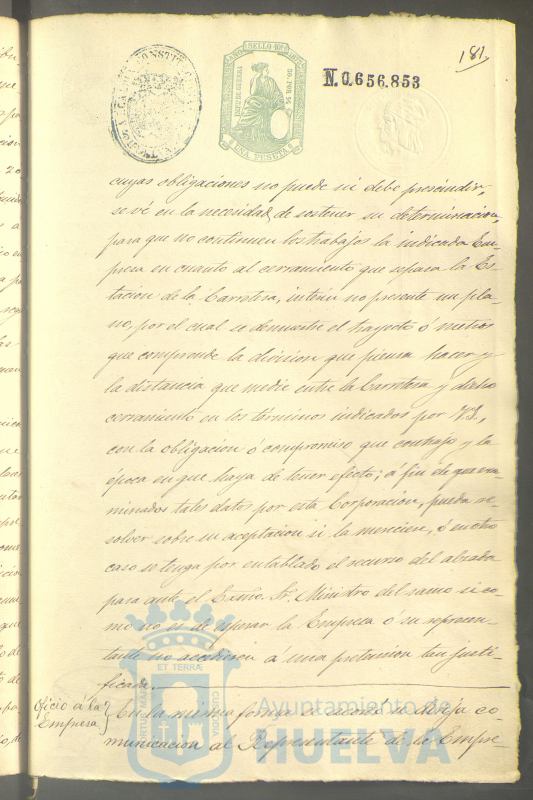 181.
SELLO 10º
UNA PESETA
N. 0.656.853
cuyas obligaciones no puede ni debe prescindir,
se vé en la necesidad, de sostener su determinacion,
para que no continuen los trabajos la indicada Em-
presa en cuanto al cerramiento que separa la Es-
tacion de la Carretera, interin no presente un pla-
no, por el cual se demuestre el trayecto ó metros
que comprende la division que piensa hacer y
la distancia que medie entre la Carretera y dicho
cerramiento en los términos indicados por V.S.,
con la obligacion ó compromiso que contrajo y la
época en que haya de tener efecto; á fin de que exa-
minados tales datos por esta Corporacion, pueda re-
solver sobre su aceptacion si la mereciese, ó en otro
caso se tenga por entablado el recurso del alzada
para ante el Excmo. Sr. Ministro del ramo si co-
mo no es de esperar la Empresa ó su represen-
tante no accediesen á una pretension tan justi-
ficada.
Oficio a la
Empresa
En la misma forma se acordó se dirija co-
municacion al Representante de la Empre-
ET TERRÆ
PORTUS MARIS
CUSTODIA
Ayuntamiento de
HUELVA